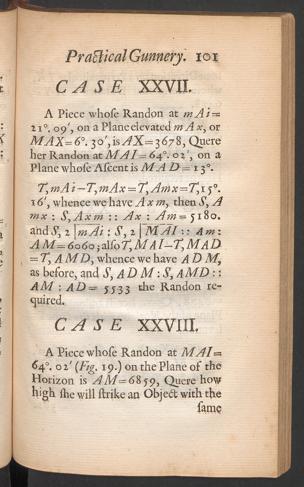 Practical Gunnery. 101
CASE XXVII.
A Piece whoſe Randon at mAi=
21°. 09′, on a Plane elevated mAx, or
MAX=6°. 30′, is AX=3678, Quere
her Randon at MAI=64°. 02′, on a
Plane whoſe Aſcent is MAD=13°.
T, mAi−T, mAx=T, Amx=T, 15°.
16′, whence we have Axm, then S, A
mx : S, Axm :: Ax : Am=5180.
and S, 2|mAi : S, 2|MAI :: Am :
AM=6060; alſo T, MAI−T, MAD
=T, AMD, whence we have ADM,
as before, and S, ADM : S, AMD ::
AM : AD= 5533 the Randon re-
quired.
CASE XXVIII.
A Piece whoſe Randon at MAI=
64°. 02′ (Fig. 19.) on the Plane of the
Horizon is AM=6859, Quere how
high ſhe will ſtrike an Object with the
ſame